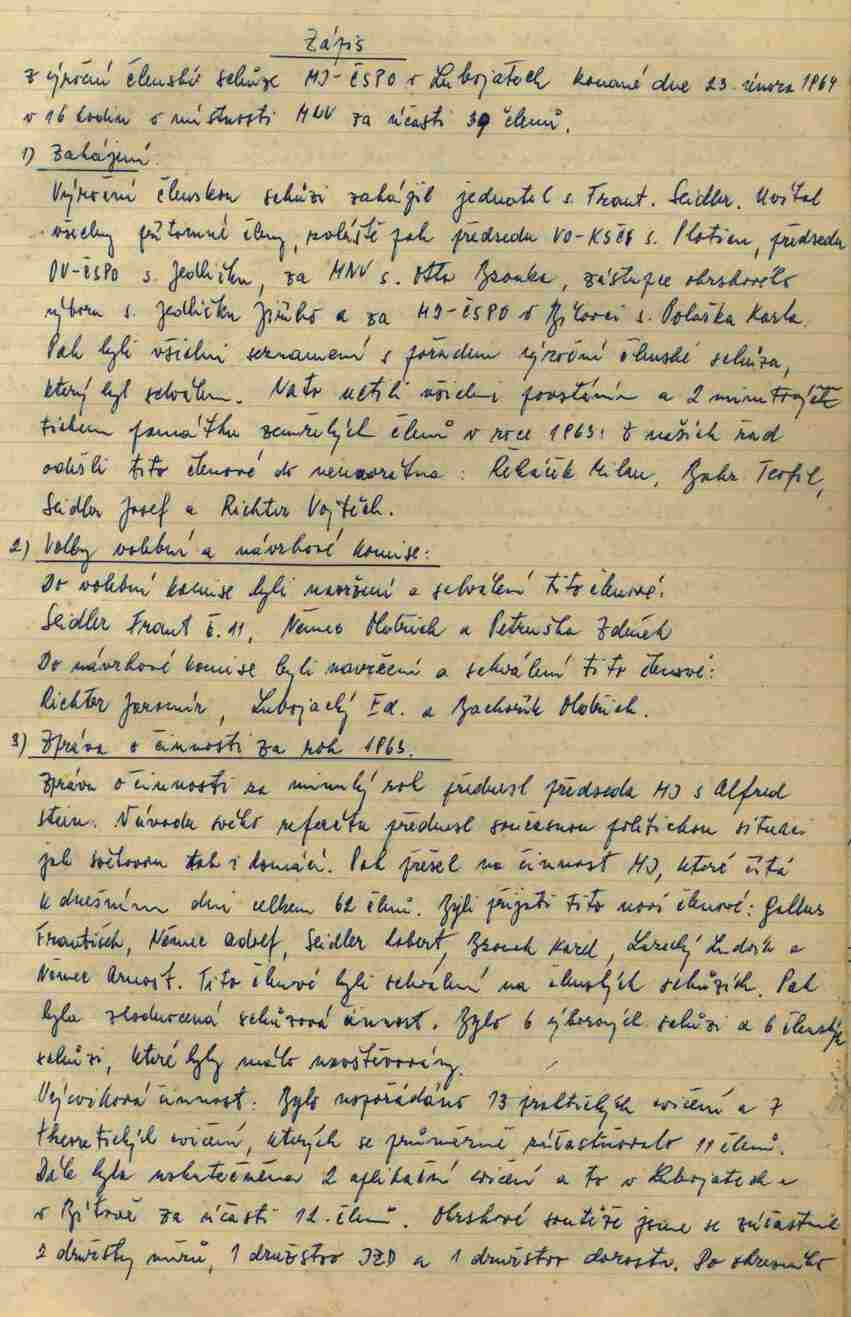 Zápis
z výroční členské schůze MJ-ČSPO v Lubojatech konané dne 23. února 1964
v 16 hodin v místnosti MNV za účasti 39 členů.
1) Zahájení.
Výroční členskou schůzi zahájil jednatel s. Frant. Seidler. Uvítal
všechny přítomné členy, zvláště pak předsedu VO-KSČ s. Plotien, předsedu
OV-ČSPO s. Jedličku, za MNV s. Otto Bzonka, zástupce okrskového
výboru s. Jedličku Jiřího a za MJ-ČSPO v Bítově s. Polaška Karla.
Pak byli všichni seznámeni s pořadem výroční členské schůze,
který byl schválen. Na to uctili všichni povstáním a 2 minutovým
tichem památku zemřelých členů v roce 1963: Z našich řad
odešli tito členové do nenávratna: Řeháček Milan, Bahr Teofil,
Seidler Josef a Richter Vojtěch.
2) Volby volební a návrhové komise:
Do volební komise byli navrženi a schváleni tito členové:
Seidler Frant č. 11, Němec Oldřich a Petruška Zdeněk
Do návrhové komise byli navrženi a schváleni tito členové:
Richter Jaromír, Lubojacký Ed. a Bachořík Oldřich.
3) Zpráva o činnosti za rok 1963.
Zprávu o činnosti za minulý rok přednesl předseda MJ s Alfred
Stein. Návodu svého referátu přednesl současnou politickou situaci
jak světovou tak i domácí. Pak přešel na činnost MJ, které čítá
k dnešním dni celkem 62 členů. Byli přijati tito noví členové: Gallus
František, Němec Adolf, Seidler Robert, Bzonek Karel, Ludvík a
Němec Arnošt. Tito členové byli schváleni na členských schůzích. Pak
byla zhodnocená schůzová činnost. Bylo 6 výborových schůzí a 6 členských
schůzí, které byly málo navštěvovány.
Výcviková činnost: Bylo uspořádáno 13 praktických cvičení a 7
theoretických cvičení, kterých se průměrně zúčastňovalo 11 členů.
Dále byla uskutečněna 2 aplikační cvičení a to v Lubojatech a
v Bítově za účasti 12. členů. Okrskové soutěže jsme se zúčastnili
2 družstvy mužů, 1 družstvo JZD a 1 družstvo dorostu. Po okresního